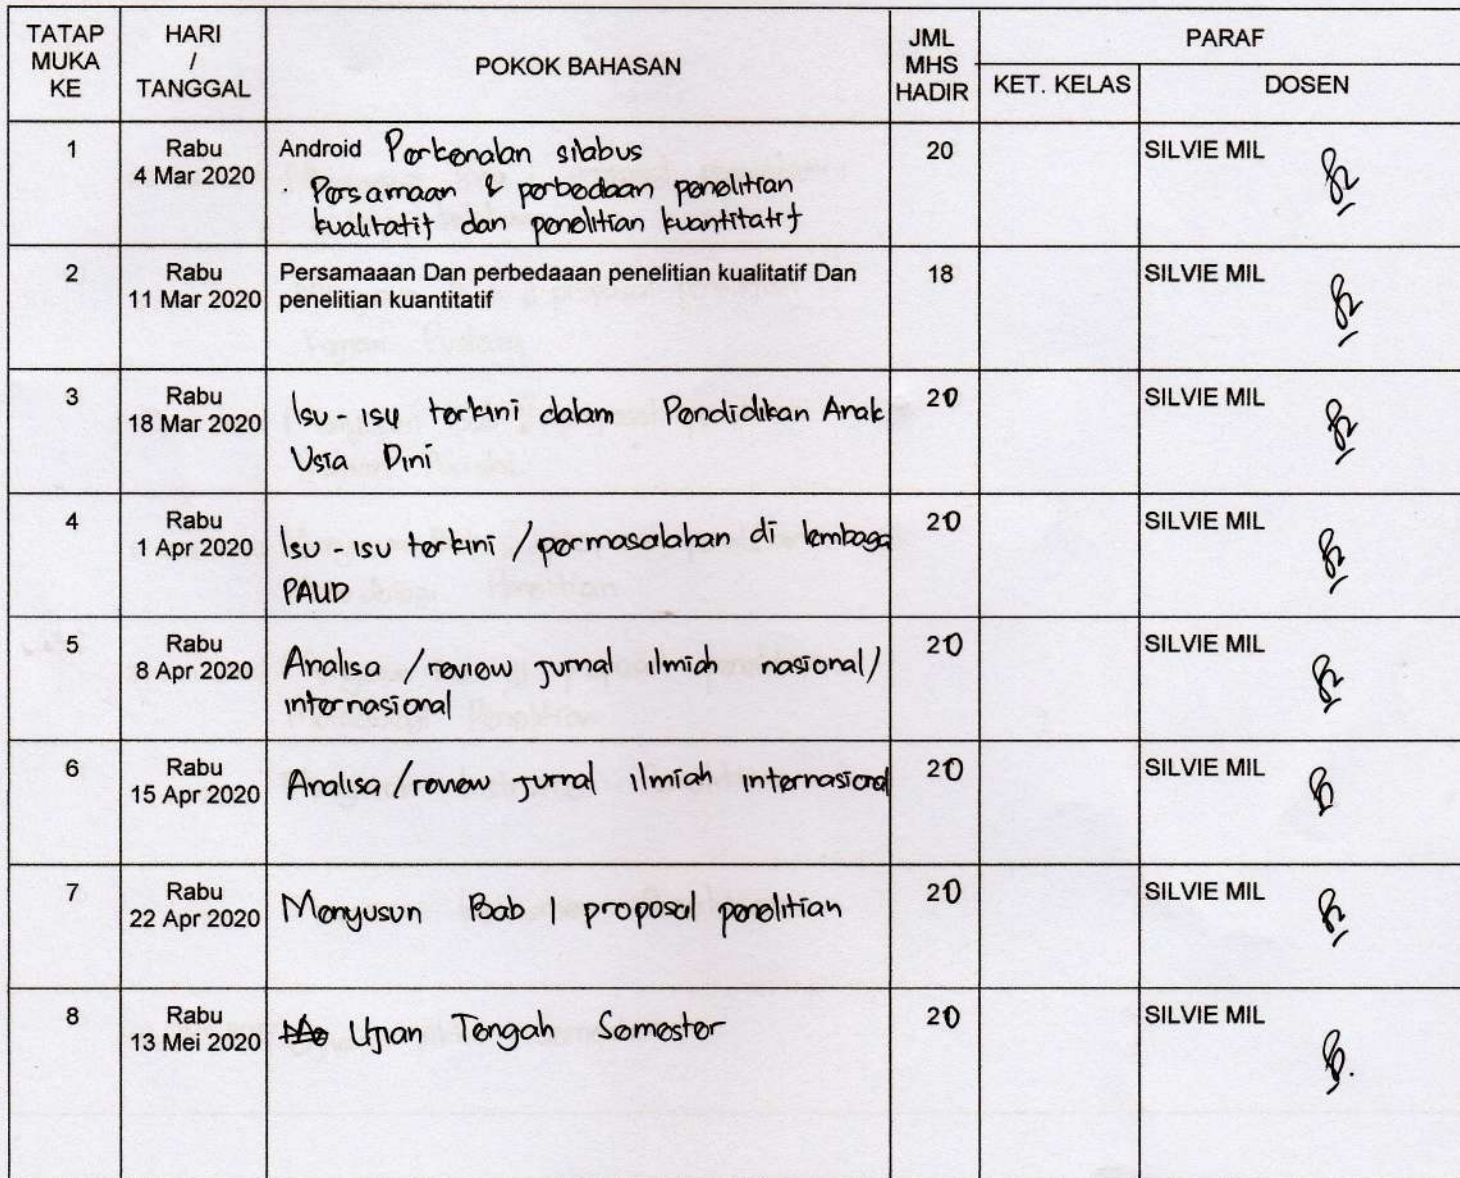 TATAP MUKA KE
HARI / TANGGAL
POKOK BAHASAN
JML MHS HADIR
PARAF
KET. KELAS
DOSEN
1
Rabu
4 Mar 2020
Android Perkenalan silabus
· Persamaan & perbedaan penelitian
kualitatif dan penelitian kuantitatif
20
SILVIE MIL
2
Rabu
11 Mar 2020
Persamaaan Dan perbedaaan penelitian kualitatif Dan
penelitian kuantitatif
18
SILVIE MIL
3
Rabu
18 Mar 2020
Isu-isu terkini dalam Pendidikan Anak
Usia Dini
20
SILVIE MIL
4
Rabu
1 Apr 2020
Isu-isu terkini / permasalahan di lembaga
PAUD
20
SILVIE MIL
5
Rabu
8 Apr 2020
Analisa / review jurnal ilmiah nasional/
internasional
20
SILVIE MIL
6
Rabu
15 Apr 2020
Analisa/review jurnal ilmiah internasional
20
SILVIE MIL
7
Rabu
22 Apr 2020
Menyusun Bab I proposal penelitian
20
SILVIE MIL
8
Rabu
13 Mei 2020
Ujian Tengah Semester
20
SILVIE MIL